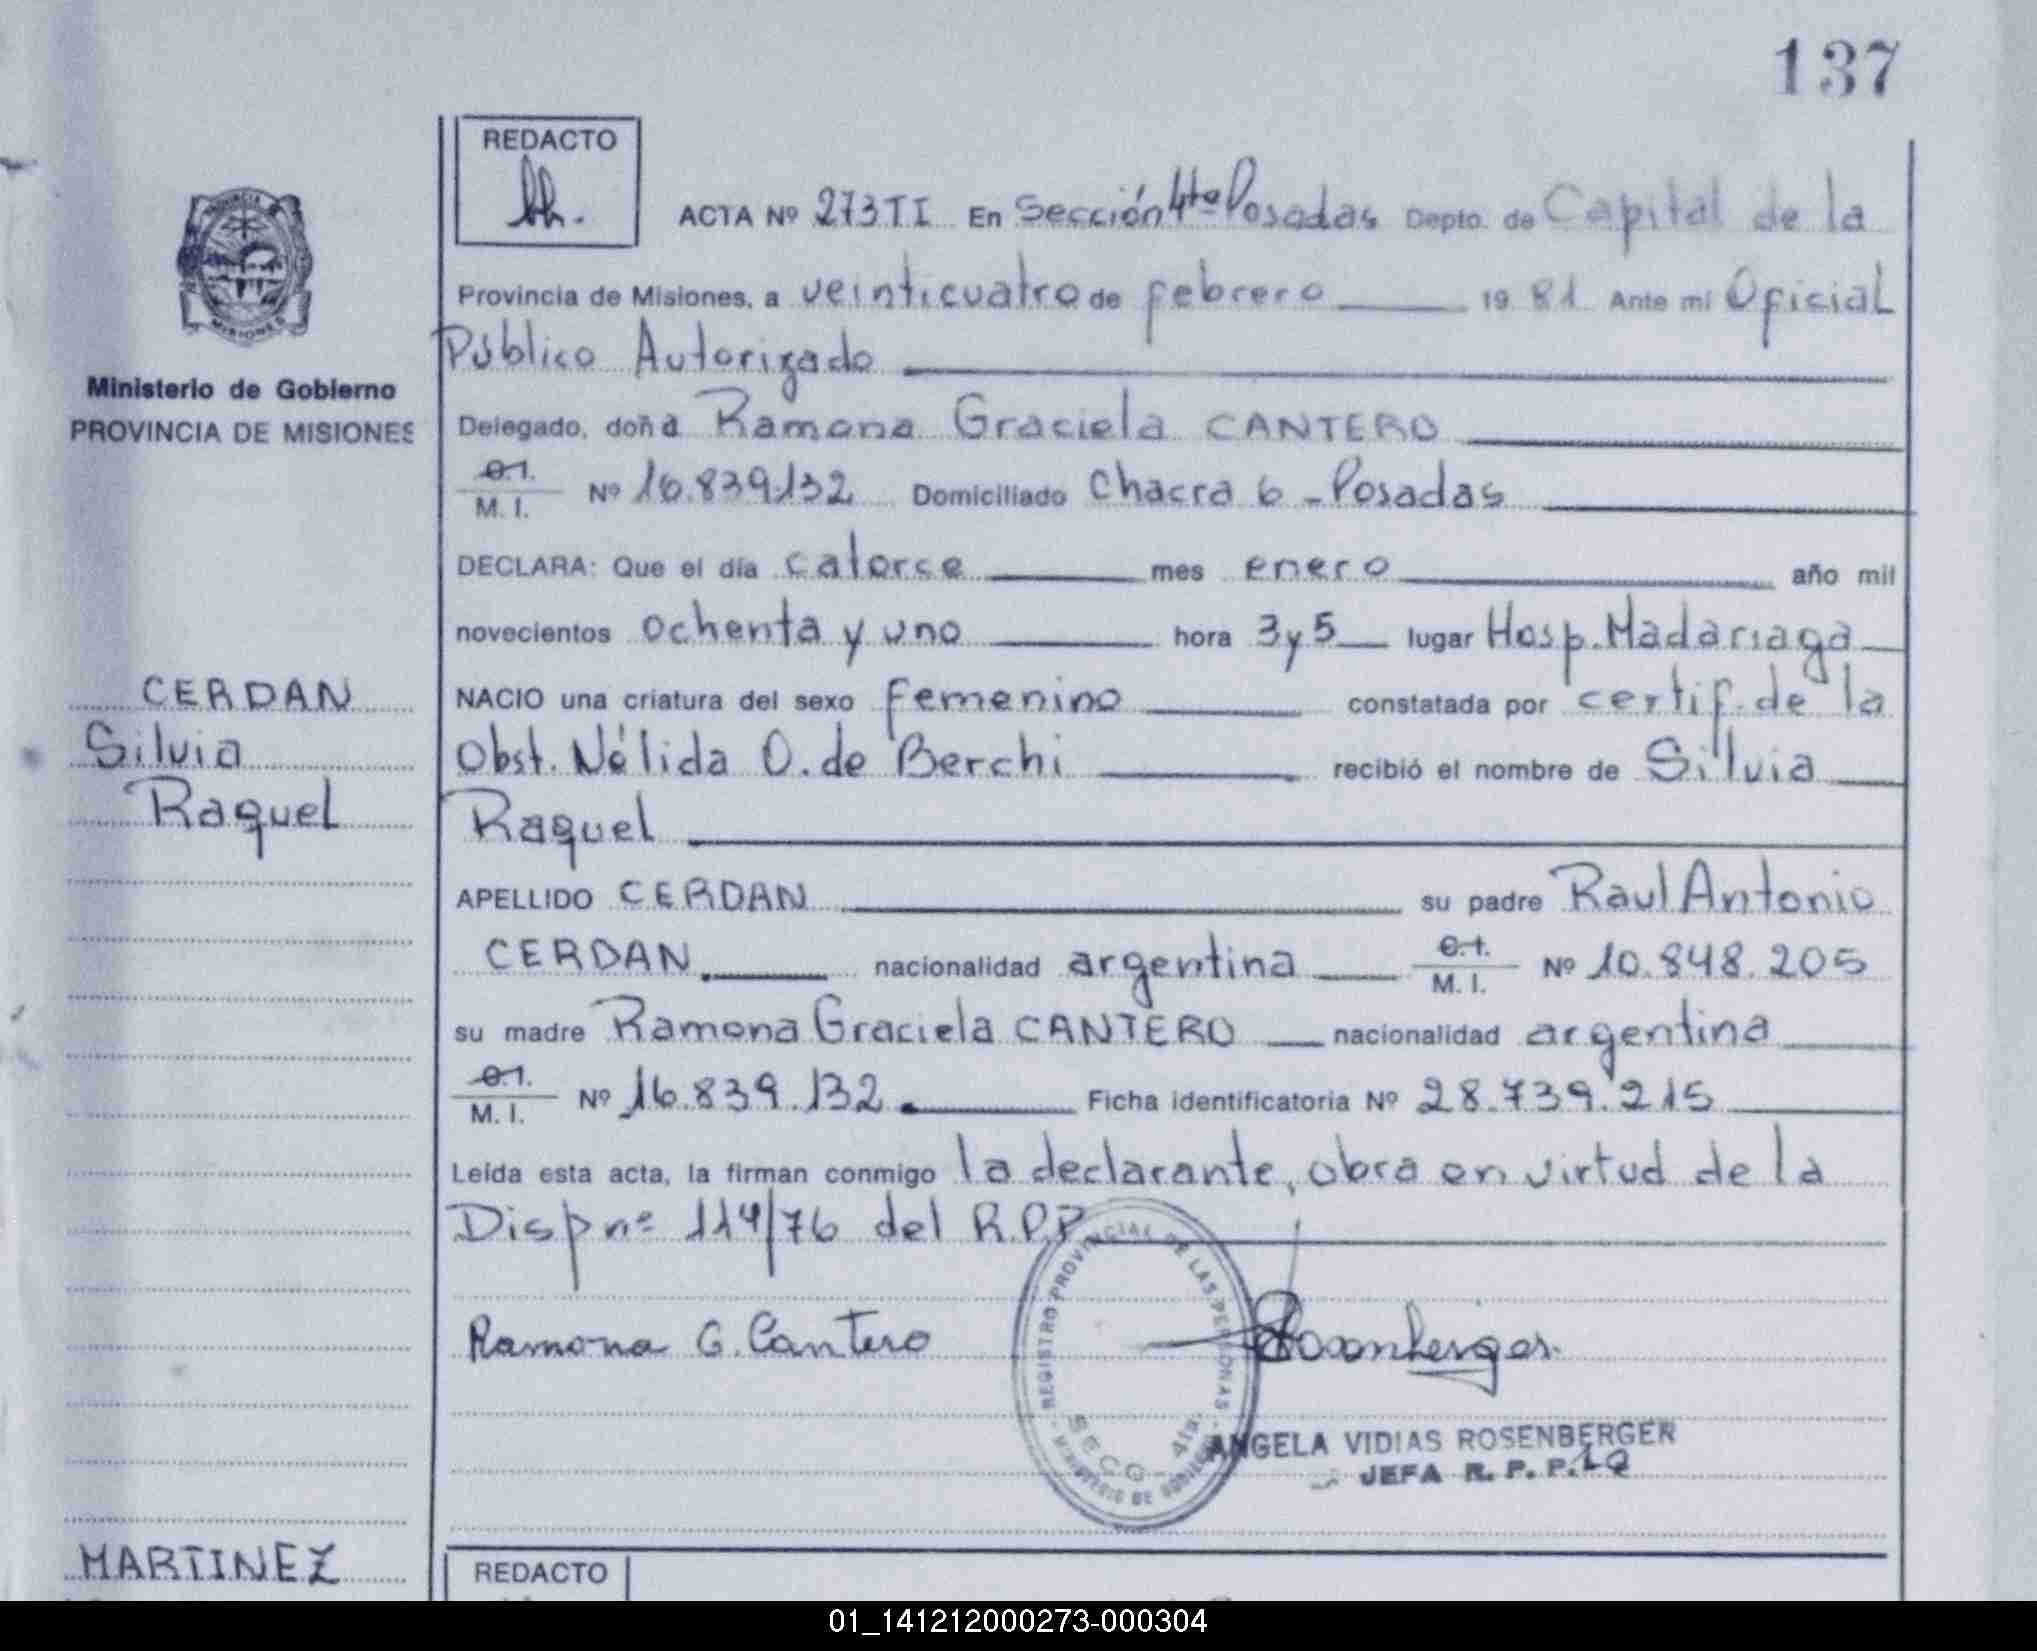 137
REDACTO
ACTA Nº 273 TI En Sección 4ta Posadas Depto. de Capital de la
Provincia de Misiones, a veinticuatro de febrero 19 81 Ante mí Oficial
Público Autorizado
Ministerio de Gobierno
PROVINCIA DE MISIONES
Delegado, doña Ramona Graciela CANTERO
C.I.
M. I. Nº 16.839.132 Domiciliado Chacra 6 - Posadas
DECLARA: Que el día catorce mes enero año mil
novecientos ochenta y uno hora 3 y 5 lugar Hosp. Madariaga
CERDAN
Silvia
Raquel
NACIO una criatura del sexo femenino constatada por certif. de la
Obst. Nélida O. de Berchi recibió el nombre de Silvia
Raquel
APELLIDO CERDAN su padre Raul Antonio
CERDAN nacionalidad argentina C.I. M. I. Nº 10.848.205
su madre Ramona Graciela CANTERO nacionalidad argentina
C.I.
M. I. Nº 16.839.132 Ficha identificatoria Nº 28.739.215
Leída esta acta, la firman conmigo la declarante, obra en virtud de la
Disp nº 114/76 del R.P.P.
REGISTRO PROVINCIAL DE LAS PERSONAS
MINISTERIO DE GOBIERNO
SECC. 4ta.
Ramona G. Cantero
Rosenberger
ANGELA VIDIAS ROSENBERGER
JEFA R. P. P.
MARTINEZ
REDACTO
01_141212000273-000304